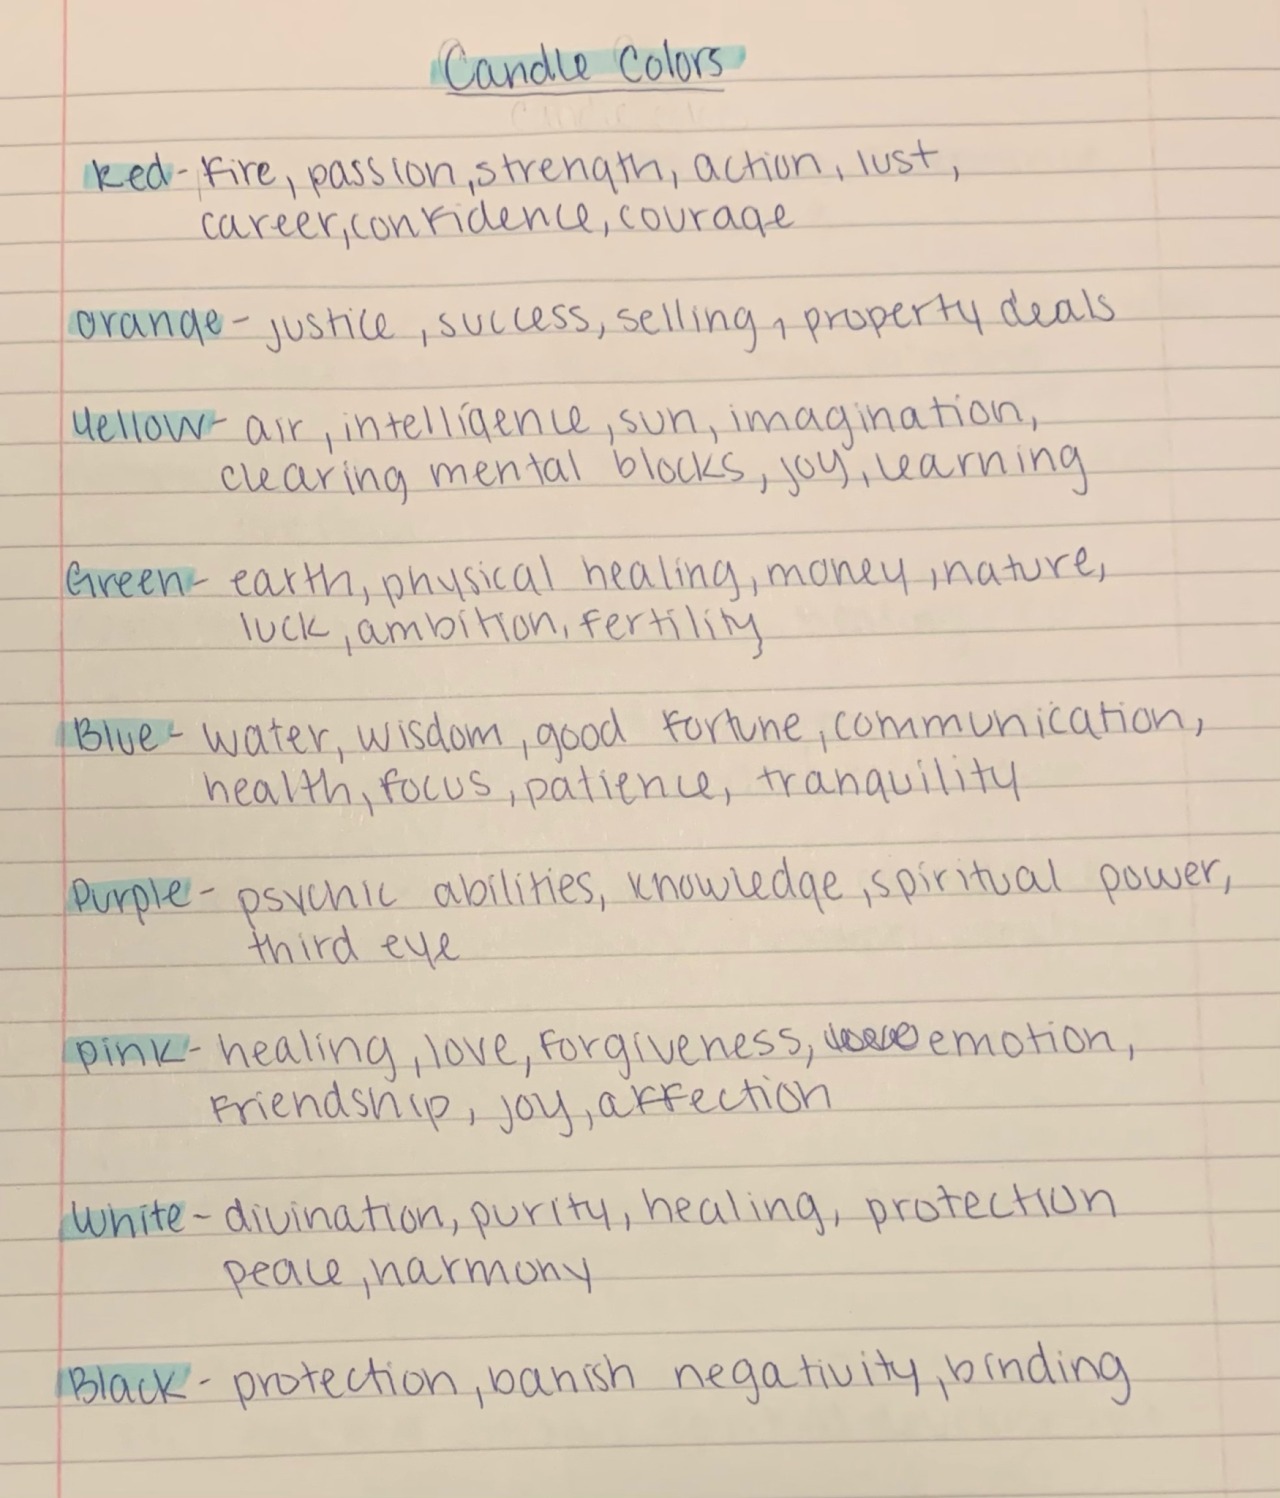 Candle Colors
Red- Fire, passion, strength, action, lust,
career, confidence, courage
orange- justice, success, selling, property deals
Yellow- air, intelligence, sun, imagination,
clearing mental blocks, joy, learning
Green- earth, physical healing, money, nature,
luck, ambition, fertility
Blue- water, wisdom, good fortune, communication,
health, focus, patience, tranquility
Purple- psychic abilities, knowledge, spiritual power,
third eye
pink- healing, love, forgiveness, emotion,
Friendship, joy, affection
White- divination, purity, healing, protection
peace, harmony
Black- protection, banish negativity, binding